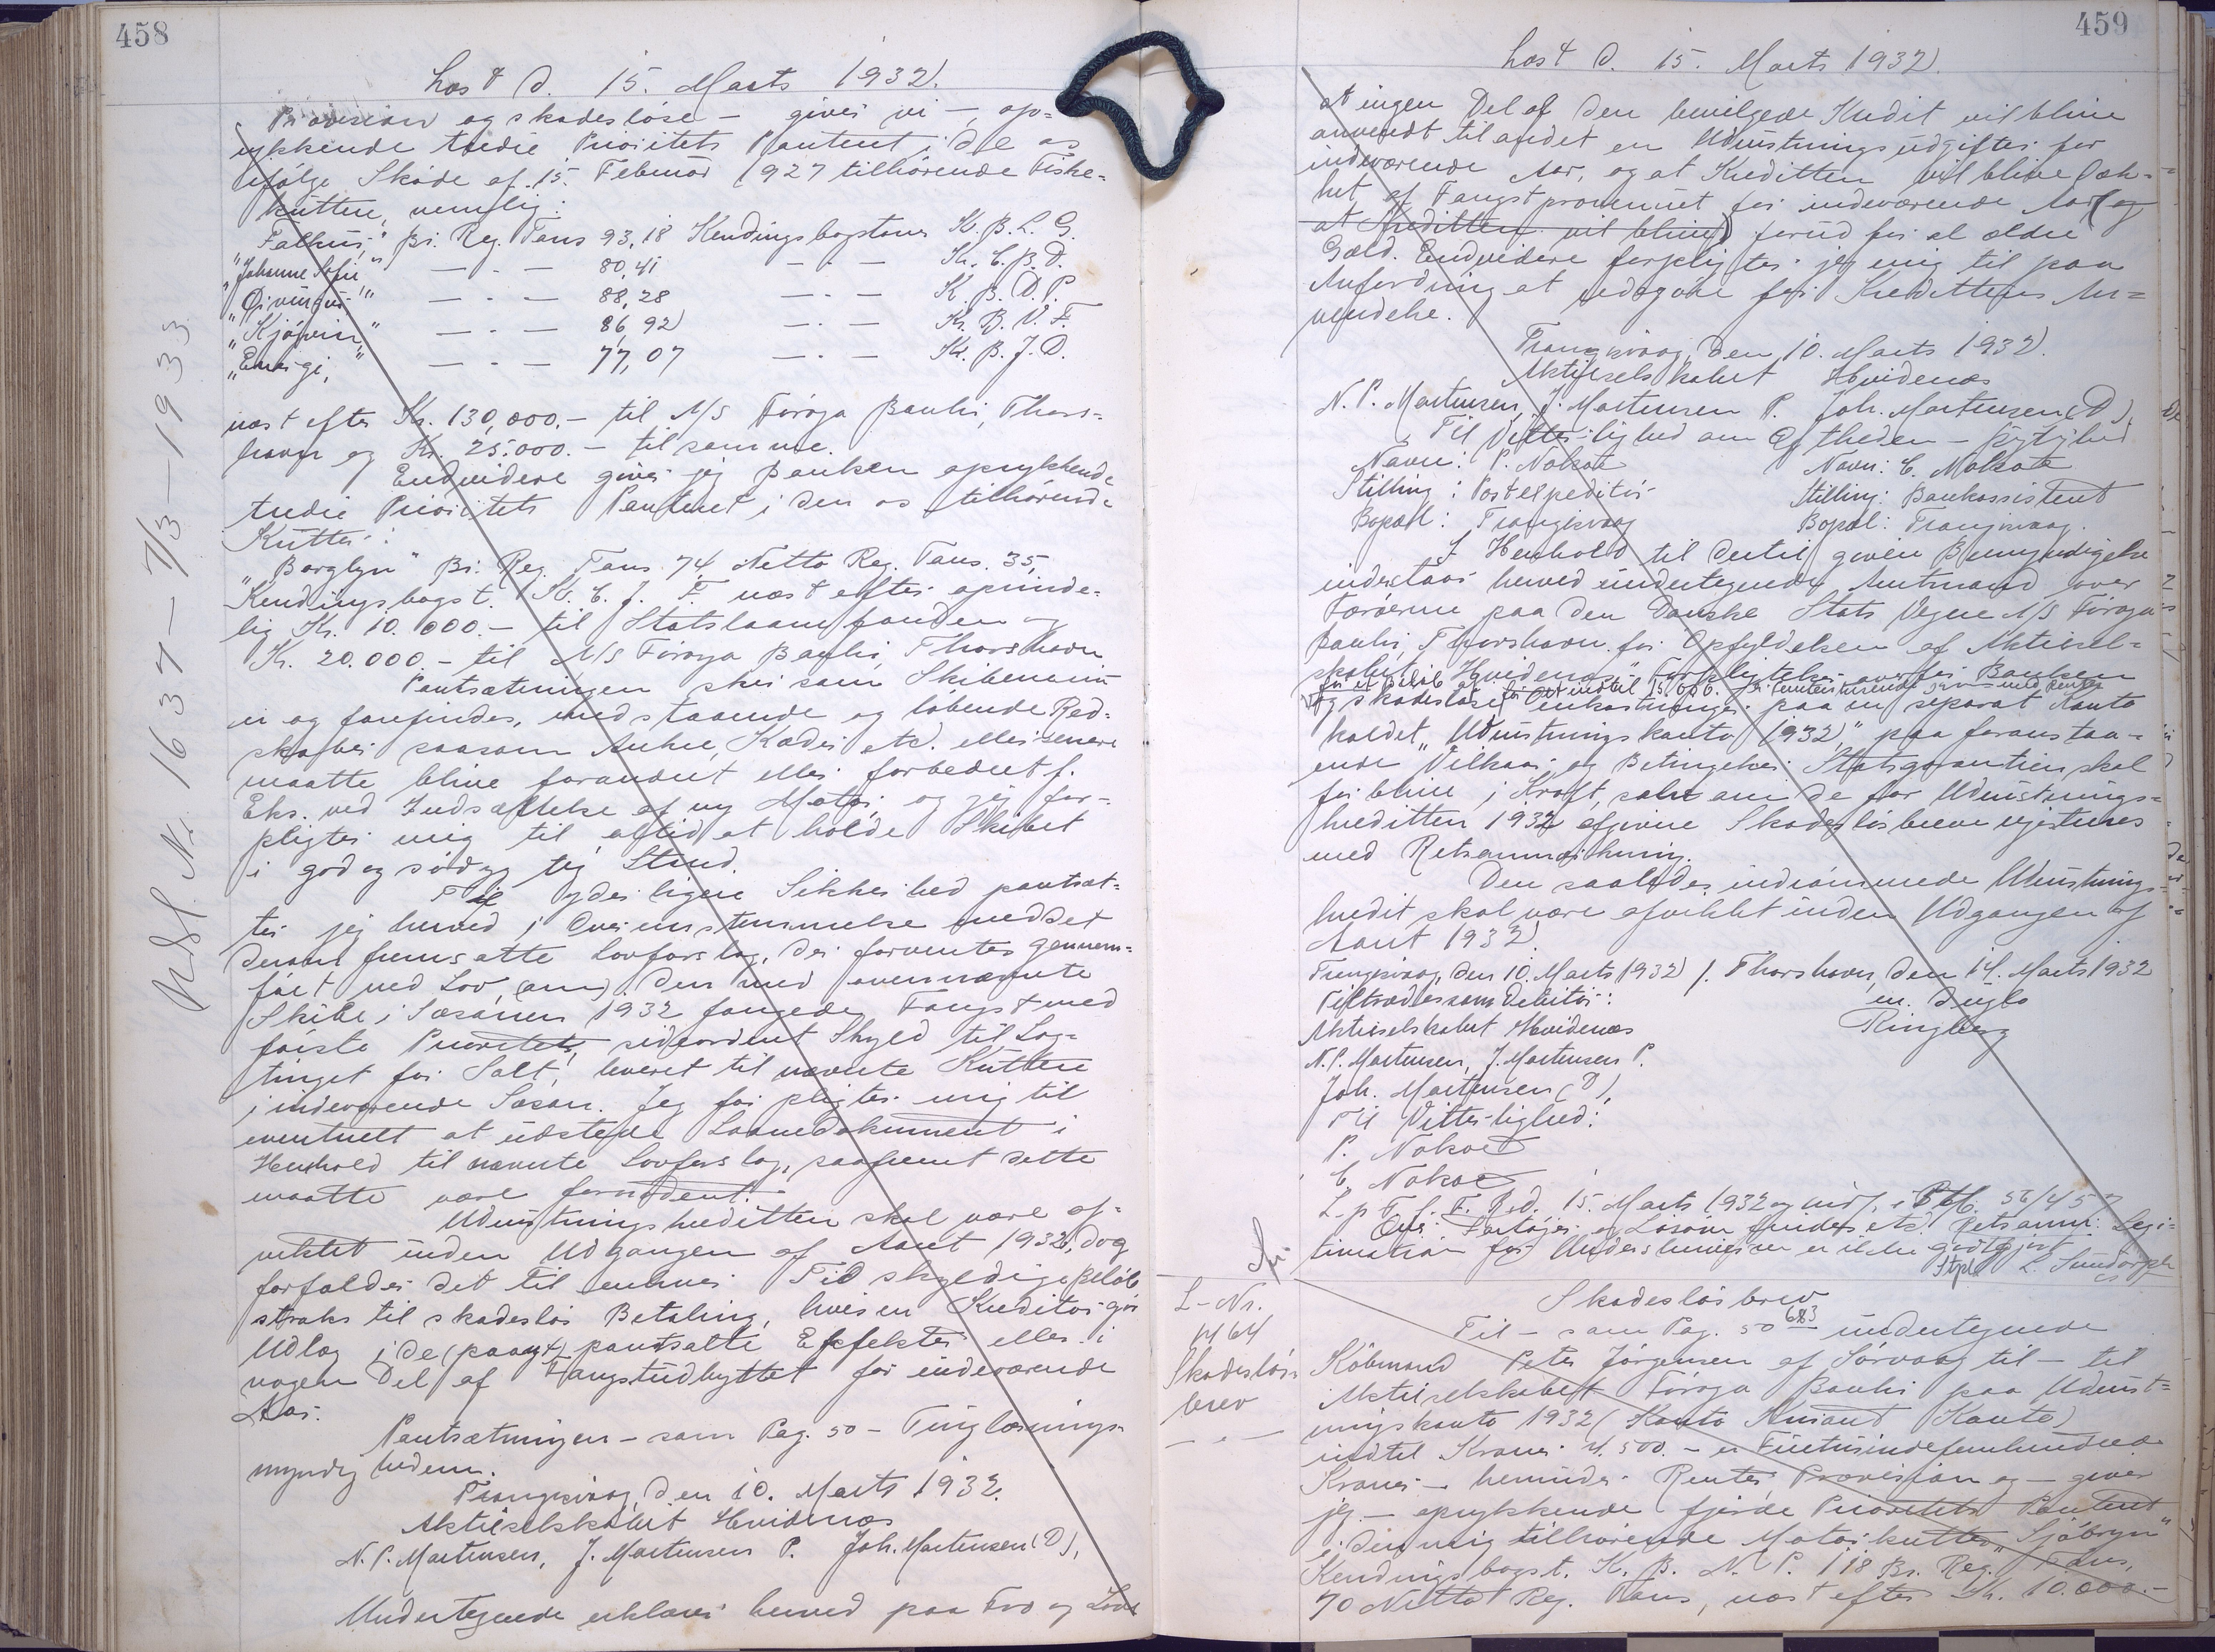 458
Læst d. 15. Marts 1932.
Provision og skadesløse - giver vi -, op-
rykkende tredie Prioritets Panteret i de os
ifølge Skøde af 15. Februar 1927 tilhørende Fiske-
kuttere, nemlig:
"Falkur," Br. Reg. Tons 93,18 Kendingsbogstaver K. B. L. G.
"Johanne Sofie" — - — 80,41 — - — K. C. B. D.
— - — 88,28 — - — K. B. D. P.
"Kjølvin" — - — 86,92 — - — K. B. V. F.
"Energi," — - — 77,07 — - — K. B. J. D.
næst efter Kr. 130,000.- til A/S Føroya Banki, Thors-
havn og Kr. 25.000.- til samme.
Endvidere giver jeg Banken oprykkende
tredie Prioritets Panteret i den os tilhørende
Kutter:
"Borglyn" Br. Reg. Tons. 74 Netto Reg. Tons. 35,
Kendingsbogst. K. C. J. F. næst efter oprinde-
lig Kr. 10.000.- til Statslaanefonden og
Kr. 20.000.- til A/S Føroya Banki, Thorshavn
Pantsætningen sker som Skibene nu
er og forefindes, med staaende og løbende Red-
skaber saasom Ankre, Kæder etc. eller senere
maatte blive forandret eller forbedret f.
Eks. ved Indsættelse af ny Motor, og jeg for-
pligter mig til altid at holde Skibet
i god og sødygtig Stand.
Til yderligere Sikkerhed pantsæt-
ter jeg herved i Overensstemmelse med det
derom fremsatte Lovforslag, der forventes gennem-
ført ved Lov, (om) den med ovennævnte
Skibe i Sæsonen 1932 fangede Fangst med
første Prioritet, sideordnet Skyld til Lag-
tinget for Salt, leveret til nævnte Kuttere
i indeværende Sæson. Jeg forpligter mig til
eventuelt at udstede Laanedokument i
Henhold til nævnte Lovforslag, saafremt dette
maatte være fornødent.
Udrustningskreditten skal være af-
viklet inden Udgangen af Aaret 1932, dog
forfalder det til enhver Tid skyldige Beløb
straks til skadesløs Betaling, hvis en Kreditor gør
Udlæg i de (paagt) pantsatte Effekter eller i
nogen Del af Fangstudbyttet for indeværende
Aar.
Pantsætningen - som Pag. 50 - Tinglæsnings-
myndigheden.
Trangisvaag, den 10. Marts 1932.
Aktieselskabet Hvidenæs
N. P. Mortensen, J. Mortensen P. Joh. Mortensen (D),
Undertegnede erklærer herved paa Tro og Love
Udsl. Nr. 1637 - 7/3 - 1933
459
Læst d. 15. Marts 1932.
at ingen Del af den bevilgede Kredit vil blive
anvendt til andet en Udrustningsudgifter for
indeværende Aar, og at Kreditten vil blive dæk-
ket af Fangstprovenuet for indeværende Aar (og
at Kreditten vil blive) forud for al ældre
Gæld. Endvidere forpligter jeg mig til paa
Anfordring at redegøre for Kredittens An-
vendelse.
Trangisvaag, den 10. Marts 1932.
Aktieselskabet Hvidenæs
N. P. Mortensen, J. Mortensen P. Joh. Mortensen (D),
Til Vitterlighed om Ægtheden - Myndighed
Navn: P. Nolsøe Navn: C. Nolsøe
Stilling: Postekspeditør Stilling: Bankassistent
Bopæl: Trangisvaag Bopæl: Trangisvaag.
I Henhold til dertil given Bemyndigelse
indestaar herved undertegnede Amtmand over
Færøerne paa den Danske Stats Vegne A/S Føroya
Banki, Thorshavn for Opfyldelsen af Aktiesel-
skabet "Hvidenæs" Forpligtelser overfor Banken
for et Beløb af indtil 15.000. Kr. femtentusinde Kroner med Renter
og skadesløse Omkostninger paa en separat Konto
kaldet "Udrustningskonto 1932," paa foranstaa-
ende Vilkaar og Betingelser. Statsgarantien skal
før blive i Kraft, selv om de for Udrustnings-
kreditten 1932 afgivne Skadesløsbreve registreres
med Retsanmærkning.
Den saaledes indrømmede Udrustnings-
kredit skal være afviklet inden Udgangen af
Aaret 1932.
Trangisvaag, den 10. Marts 1932 /. Thorshavn, den 14. Marts 1932
Tiltrædes som Debitor: m. Duglo
Aktieselskabet Hvidenæs Ringberg
N. P. Mortensen, J. Mortensen P.
Joh. Mortensen (D),
Til Vitterlighed:
P. Nolsøe
C. Nolsøe
L. p. F. f. F. R. d. 15. Marts 1932 og indf. i Ptb. 56/457
Retsanm: Legi-
timation for Underskriverne er ikke godtgjort
L. Sundorph
Skadesløsbrev
L-Nr.
1464
Skadesløs-
brev
— " —
Til - som Pag. 50 683 undertegnede
Købmand Peter Jørgensen af Sørvaag til - til
Aktieselskabet Føroya Banki paa Udrust-
ningskonto 1932 (Konto Kurant Konto)
indtil Kroner 4.500.- er Firetusindefemhundrede
Kroner - herunder Renter, Provision og - giver
jeg - oprykkende fjerde Prioritets Panteret
i den mig tilhørende Motorkutter "Sjóbryn"
Kendingsbogst. K. B. N. P. 118 Br. Reg. Tons,
70 Netto Reg. Tons, næst efter Kr. 10.000.-